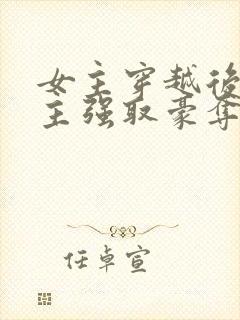 女主穿越後
主强取豪夺
任卓宣